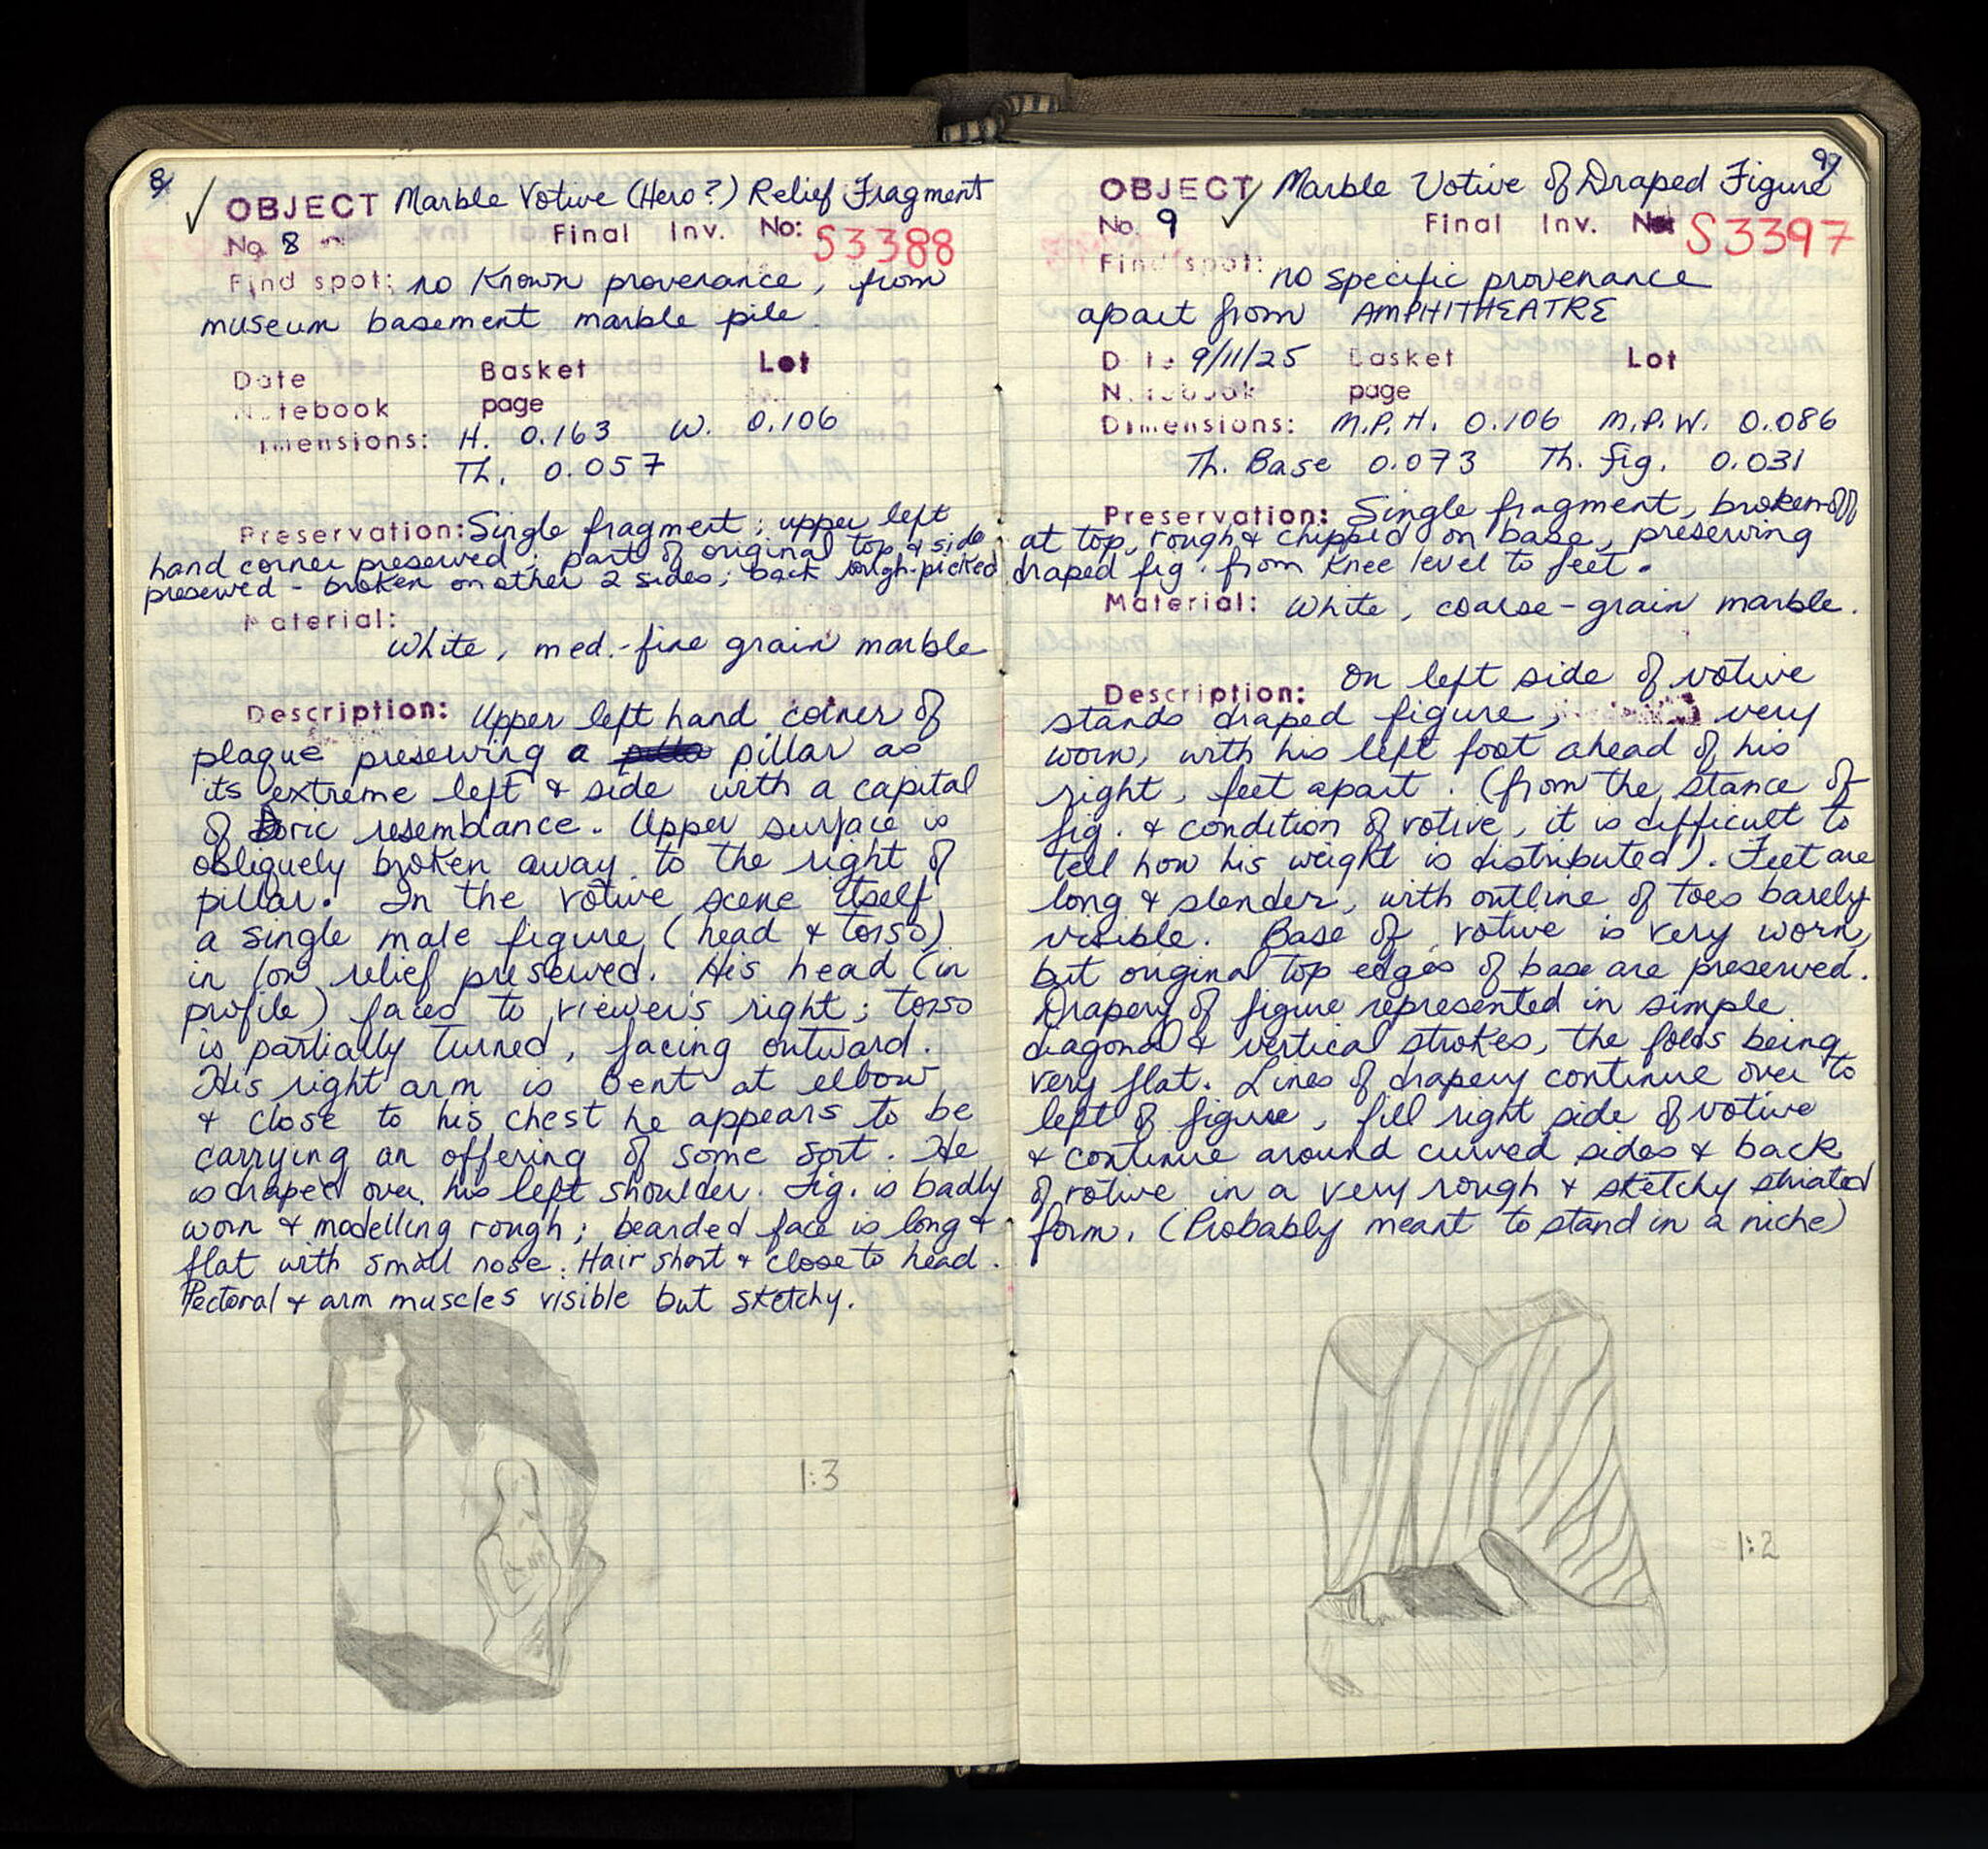 8
✓ OBJECT Marble Votive (Hero?) Relief Fragment
No. 8 Final Inv. No: S3388
Find spot: no known provenance, from
museum basement marble pile
Date Basket Lot
Notebook page
Dimensions: H. 0.163 W. 0.106
Th. 0.057
Preservation: Single fragment; upper left
hand corner preserved; part of original top & side
preserved - broken on other 2 sides; back rough-picked
Material:
White, med.-fine grain marble
Description: Upper left hand corner of
plaque preserving a pillar as
its extreme left & side with a capital
of Doric resemblance. Upper surface is
obliquely broken away to the right of
pillar. In the votive scene itself
a single male figure (head & torso)
in low relief preserved. His head (in
profile) faces to viewer's right; torso
is partially turned, facing outward.
His right arm is bent at elbow
& close to his chest he appears to be
carrying an offering of some sort. He
is draped over his left shoulder. Fig. is badly
worn & modelling rough; bearded face is long &
flat with small nose. Hair short & close to head.
Pectoral & arm muscles visible but sketchy.
1:3
9
OBJECT ✓ Marble Votive of Draped Figure
No. 9 Final Inv. No: S3397
Find spot: no specific provenance
apart from AMPHITHEATRE
Date 9/11/25 Basket Lot
Notebook page
Dimensions: M.P.H. 0.106 M.P.W. 0.086
Th. Base 0.073 Th. fig. 0.031
Preservation: Single fragment, broken off
at top, rough & chipped on base, preserving
draped fig. from knee level to feet.
Material: White, coarse-grain marble.
Description: On left side of votive
stands draped figure, very
worn, with his left foot ahead of his
right, feet apart. (from the stance of
fig. & condition of votive, it is difficult to
tell how his weight is distributed). Feet are
long & slender, with outline of toes barely
visible. Base of votive is very worn,
but original top edges of base are preserved.
Drapery of figure represented in simple
diagonal & vertical strokes, the folds being
very flat. Lines of drapery continue over to
left of figure, fill right side of votive
& continue around curved sides & back
of votive in a very rough & sketchy striated
form. (Probably meant to stand in a niche)
1:2